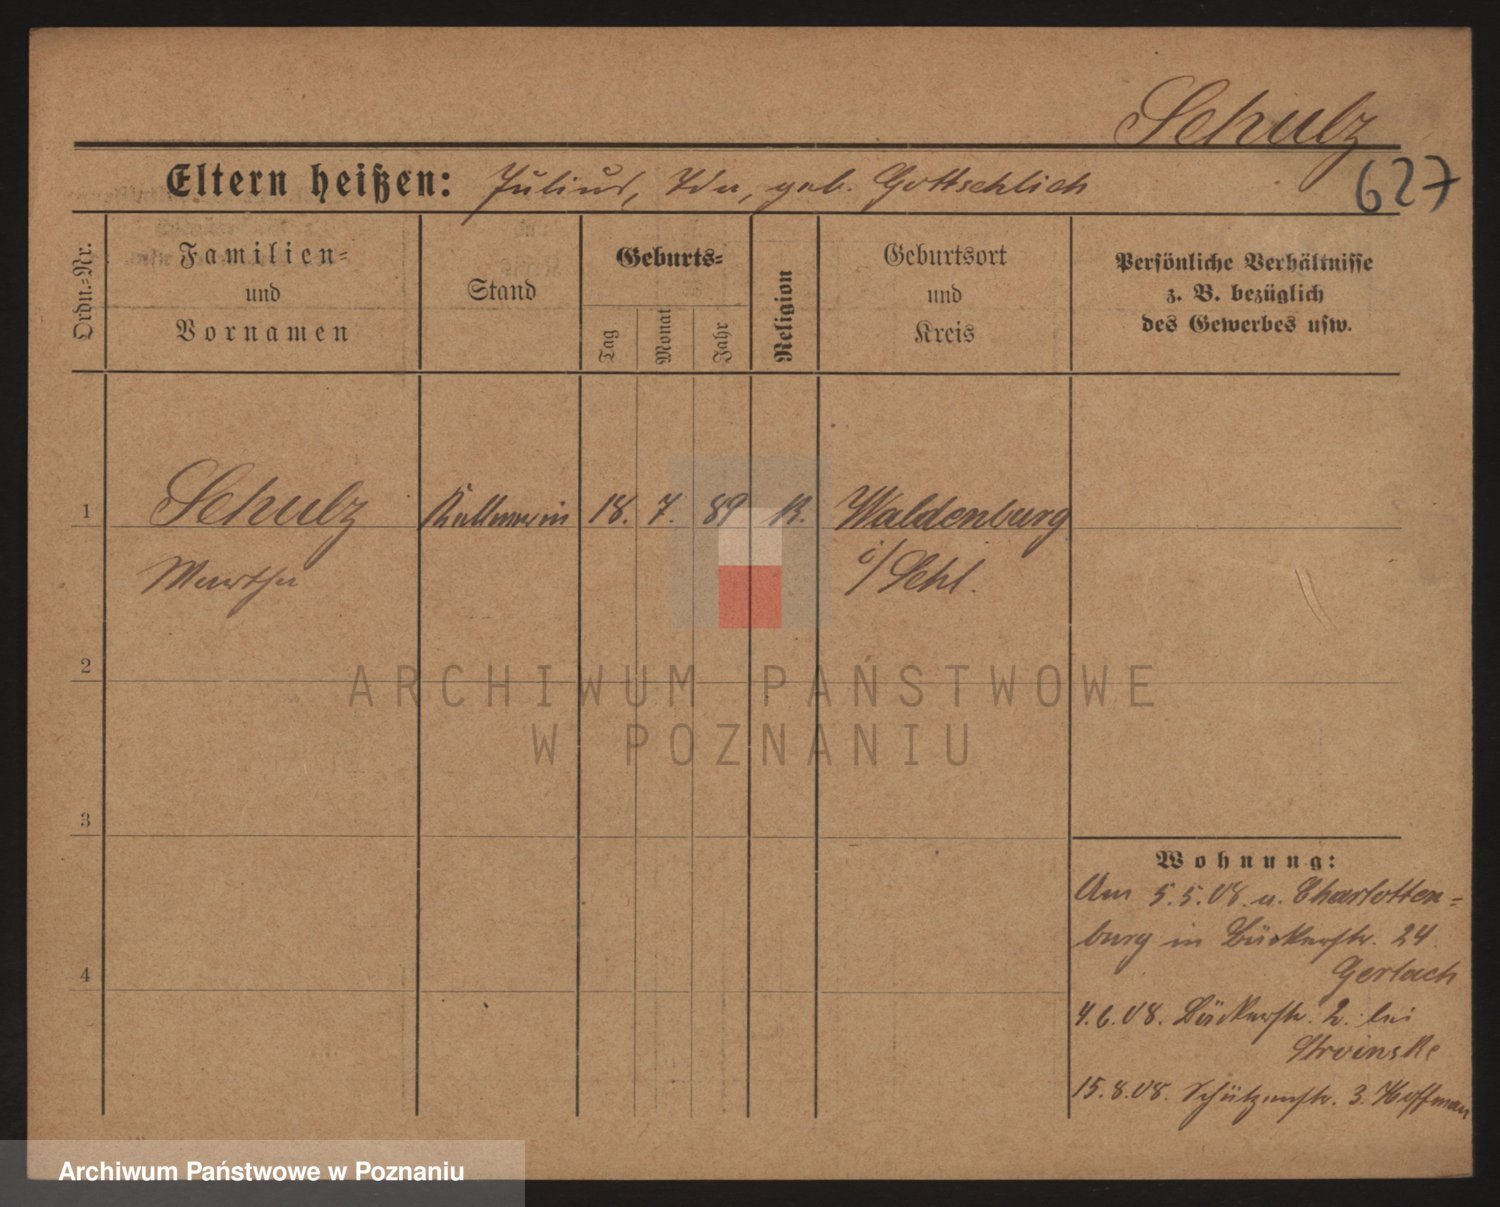 Schulz
627
Eltern heißen: Julius, Ida, geb. Gottschlich
Ordn.-Nr.
Familien-
und
Vornamen
Stand
Geburts-
Tag
Monat
Jahr
Religion
Geburtsort
und
Kreis
Persönliche Verhältnisse
z. B. bezüglich
des Gewerbes usw.
1
Schulz
Kellnerin
18.
7.
89
K.
Waldenburg
Martha
i/Schl.
2
3
4
Wohnung:
Am 5.5.08. a. Charlotten-
burg in Bäckerstr. 24.
Gerlach
4.6.08. Bäckerstr. 2. bei
Stroinske
15.8.08. Schützenstr. 3. Hoffman
ARCHIWUM PAŃSTWOWE
W POZNANIU
Archiwum Państwowe w Poznaniu